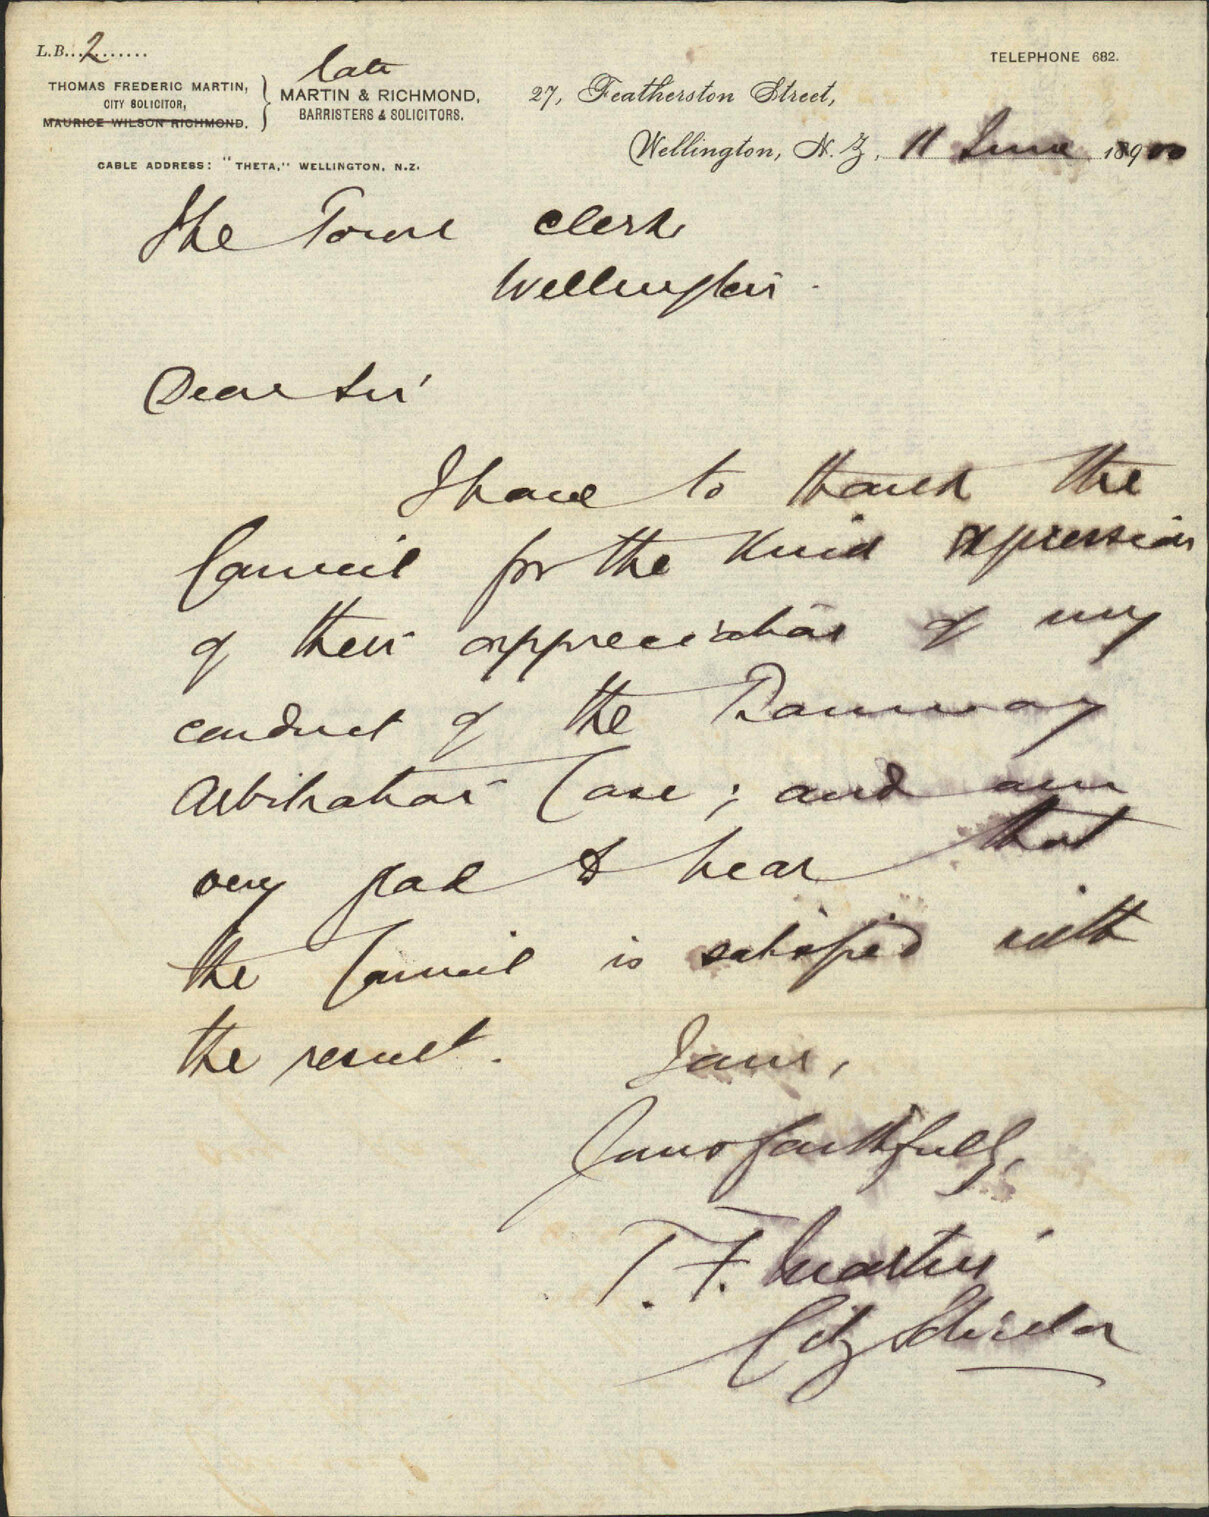 L.B. 2
TELEPHONE 682.
THOMAS FREDERIC MARTIN,
CITY SOLICITOR,
MAURICE WILSON RICHMOND.
late
MARTIN & RICHMOND,
BARRISTERS & SOLICITORS.
27, Featherston Street,
Wellington, N.Z., 11 June 1900
CABLE ADDRESS: "THETA," WELLINGTON, N.Z.
The Town Clerk
Wellington.
Dear Sir
I have to thank the
Council for the kind expression
of their appreciation of my
conduct of the Tramway
Arbitration Case; and am
very glad to hear that
the Council is satisfied with
the result.
I am,
Yours faithfully,
T. F. Martin
City Solicitor